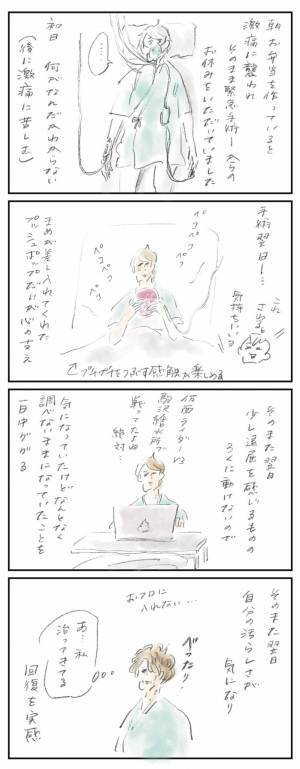 朝お弁当を作っていると
激痛に襲われ
そのまま緊急手術！からの
お休みをいただいていました
・・・・
初日　何がなんだかわからない
（後に激痛に苦しむ）
手術翌日ー…
これ
さわると
気持ちいい
ペコペコ
ペコペコ
ペコペコ
まめが差し入れてくれた
プッシュポップだけが心の支え
プチプチをつぶす感触が楽しめる
そのまた翌日
少し退屈を感じるものの
ろくに動けないので
仮面ライダーV3
駒沢給水所で
戦ってたよね
絶対…
気になっていたけどなんとなく
調べないままになっていたことを
一日中ググる
そのまた翌日
自分の汚らしさが
気になり
おフロに
入れない…
べったり
あ…私
治ってきてる
回復を実感